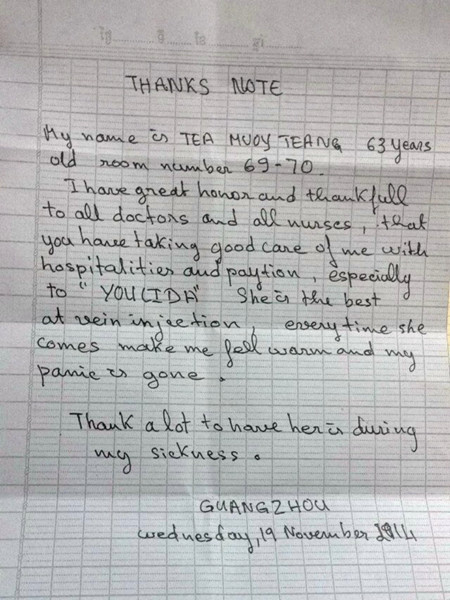 THANKS NOTE
My name is TEA MUOY TEANG 63 years
old room number 69-70.
I have great honor and thankfull
to all doctors and all nurses, that
you have taking good care of me with
hospitalities and paytion, especially
to "YOULIDA" She is the best
at vein injection, everytime she
comes make me fell warm and my
panic is gone.
Thank a lot to have her is during
my sickness.
GUANGZHOU
wednesday, 19 November 2014